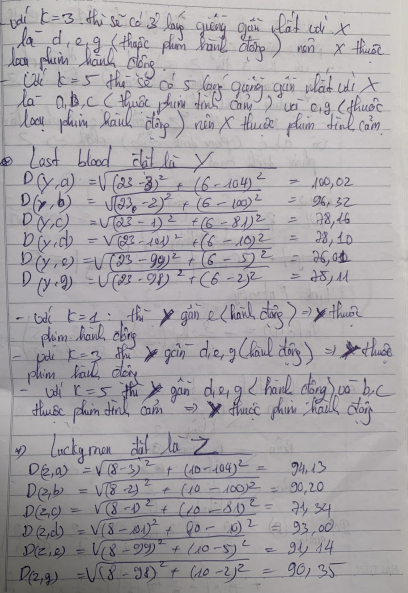 với K=3 thì sẽ có 3 láng giềng gần nhất với X
là d, e, g (thuộc phim hành động) nên X thuộc
loại phim hành động.
- Với K=5 thì sẽ có 5 láng giềng gần nhất với X
là a, b, c (thuộc phim tình cảm) và e, g (thuộc
loại phim hành động) nên X thuộc phim tình cảm
Last blood đặt là Y
D(y,a) = √(23-3)² + (6-104)² = 100,02
D(y,b) = √(23-2)² + (6-100)² = 96,32
D(y,c) = √(23-1)² + (6-81)² = 78,16
D(y,d) = √(23-101)² + (6-10)² = 78,10
D(y,e) = √(23-99)² + (6-5)² = 76,01
D(y,g) = √(23-98)² + (6-2)² = 75,11
- với K=1 : thì Y gần e (hành động) => Y thuộc
phim hành động
- với K=3 thì Y gần d, e, g (hành động) => Y thuộc
phim hành động
- với K=5 thì Y gần d, e, g (hành động) và b, c
thuộc phim tình cảm => Y thuộc phim hành động
Luckymen đặt là Z
D(z,a) = √(8-3)² + (10-104)² = 94,13
D(z,b) = √(8-2)² + (10-100)² = 90,20
D(z,c) = √(8-1)² + (10-81)² = 71,34
D(z,d) = √(8-101)² + (10-10)² = 93,00
D(z,e) = √(8-99)² + (10-5)² = 91,14
D(z,g) = √(8-98)² + (10-2)² = 90,35